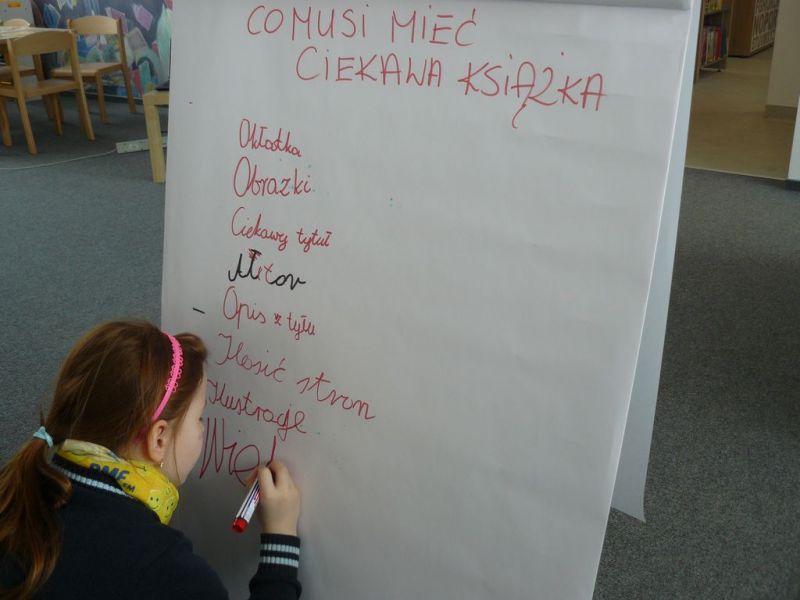 CO MUSI MIEĆ
CIEKAWA KSIĄŻKA
Okładka
Obrazki
Ciekawy tytuł
- Opis z tyłu
Ilosić stron
Ilustracje
RMF